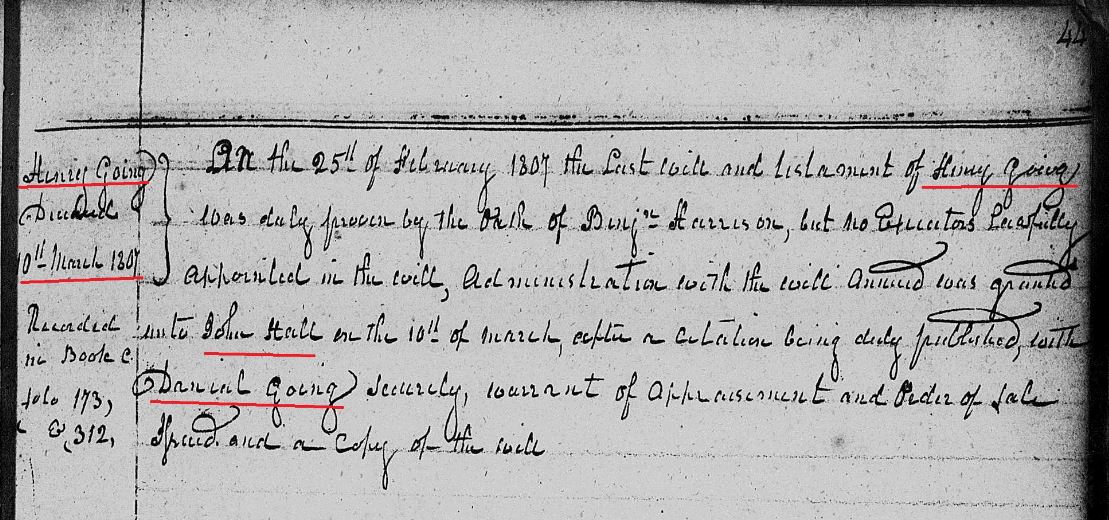 44
Henry Going
Deceased
10th March 1807
Recorded
in Book C
folo 173,
& 312,
On the 25th of February 1807 the Last will and testament of Henry Going
was duly proven by the Oath of Benjn Harrison, but no Executors Lawfully
appointed in the will, Administration with the will Annexed was granted
unto John Hall on the 10th of March, after a Citation being duly published, with
Danial Going Security, warrant of Appraisement and Order of Sale
Issued and a Copy of the will